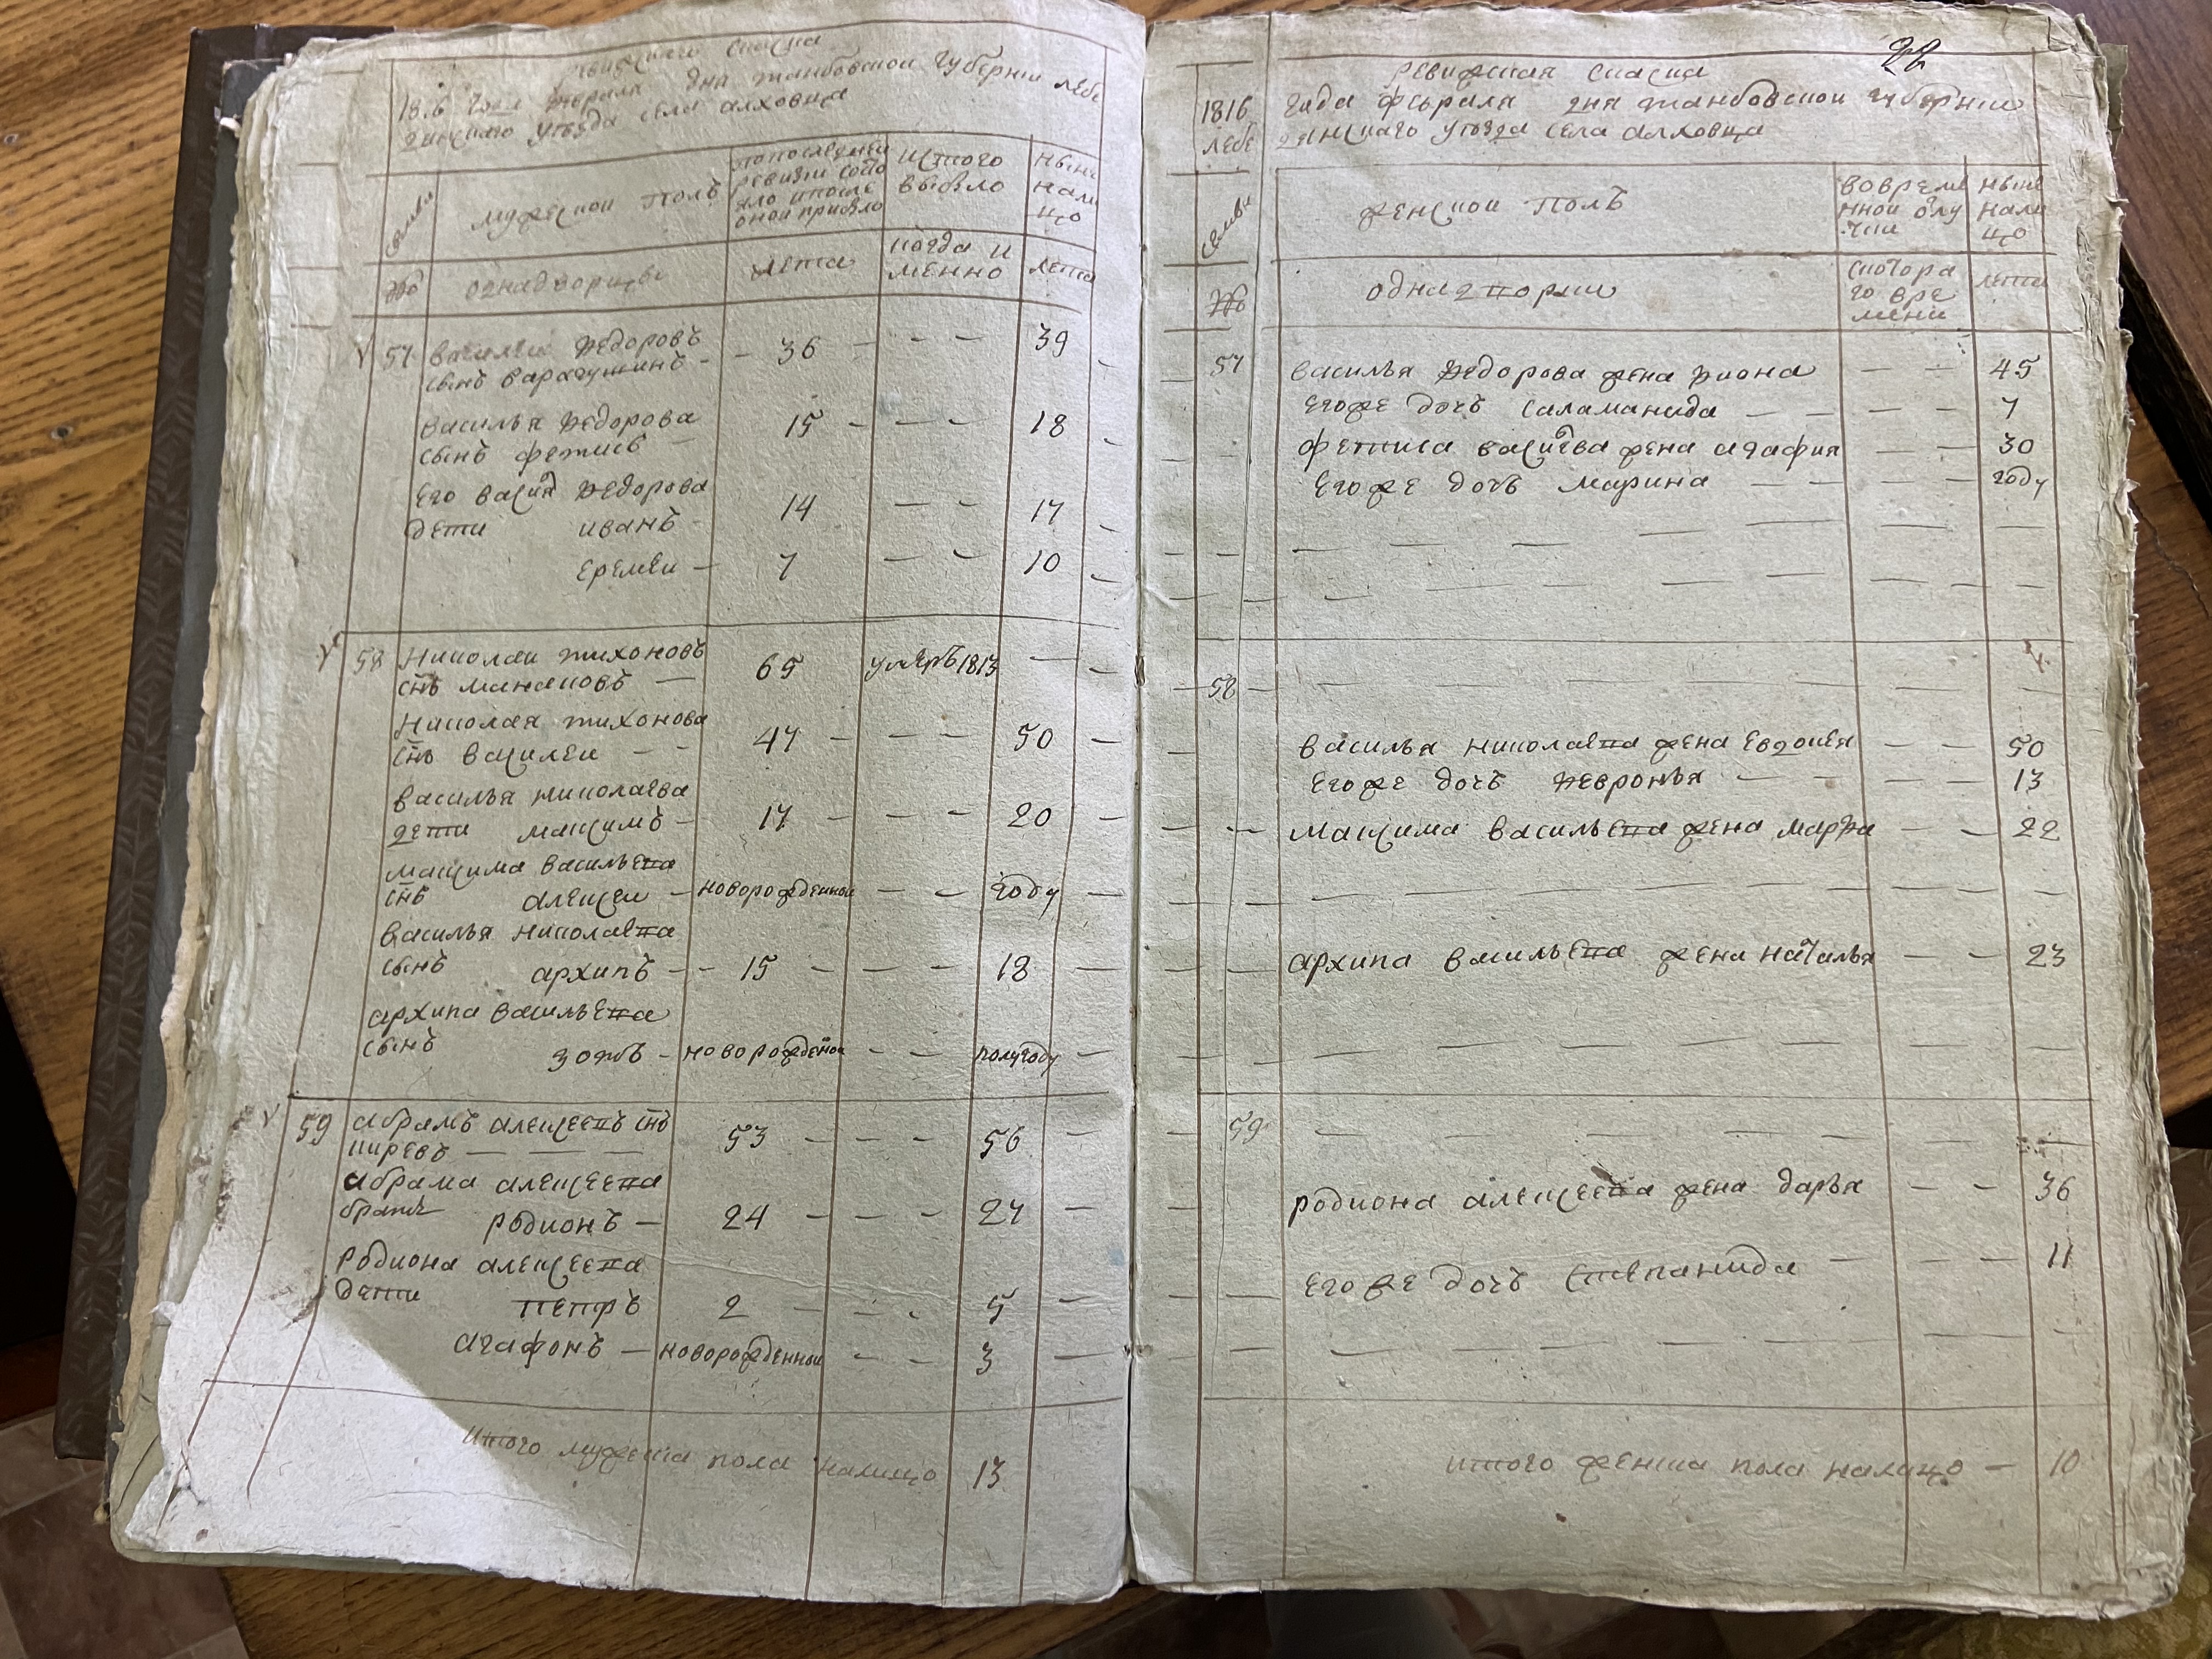 ревижская сказка
1816 года февраля дня танбовской губернии лебе
дянскаго уѣзда села алховца
семьи
мужеской полъ
попоследней
ревизи состо
яло ипосле
оной прибло
истого
выбло
нынѣ
нали
цо
однадворцы
лета
когда и
менно
лета
57 василеи федоровъ
сынъ варагушинъ - - 36 - - - 39
василья федорова
сынъ фетисъ - 15 - - - 18
его василя федорова
дети иванъ - 14 - - 17
еремеи - 7 - - 10
58 николаи тихоновъ
снъ манаковъ - 65 умеръ 1813 -
николая тихонова
снъ василеи - - 47 - - - 50
василья николаева
дети максимъ - 17 - - - 20
максима васильева
снъ алексеи - новорожденнои - - году
василья николаева
сынъ архипъ - - 15 - - - 18
архипа васильева
сынъ зотъ - новорожденои - - полугоду
59 абрамъ алексеевъ снъ
киревъ - - - 53 - - - 56
абрама алексеева
братъ родионъ - 24 - - - 27
родиона алексеева
дети петръ 2 - - - 5
агафонъ - новорожденнои - - 3
итого мужеска пола налицо 13
22
ревижская сказка
1816 года февраля дня танбовской губернии
лебе дянскаго уѣзда села алховца
семьи
женской полъ
вовреме
нной отлу
чки
ныне
нали
цо
однадворки
скотора
го вре
мени
лета
57 василья федорова жена фиона - - 45
егоже дочь саламанида - - - - 7
фетиса василева жена агафия - 30
егоже дочь марина - - - - году
58
василья николаева жена евдокея - - 50
егоже дочь февронья - - - - 13
максима васильева жена марфа - - 22
архипа васильева жена наталья - - 23
59
родиона алексеева жена дарья - - 36
егоже дочь степанида - - - 11
итого женска пола налицо - 10